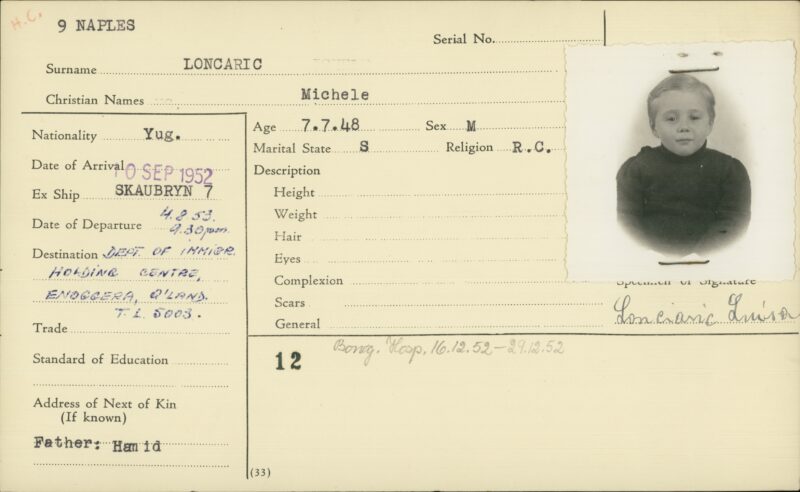 H.C.
9 NAPLES
Serial No.
Surname LONCARIC
Christian Names Michele
Nationality Yug.
Date of Arrival 10 SEP 1952
Ex Ship SKAUBRYN 7
Date of Departure 4.8.53.
9.30pm.
Destination DEPT. OF IMMIGR.
HOLDING CENTRE,
ENOGGERA, Q'LAND.
T.L. 5003.
Trade
Standard of Education
Address of Next of Kin
(If known)
Father: Hamid
Age 7.7.48 Sex M
Marital State S Religion R.C.
Description
Height
Weight
Hair
Eyes
Complexion
Scars
General
Specimen of Signature
Lonciaric Luisa
12
Bong. Hosp. 16.12.52 — 29.12.52
(33)